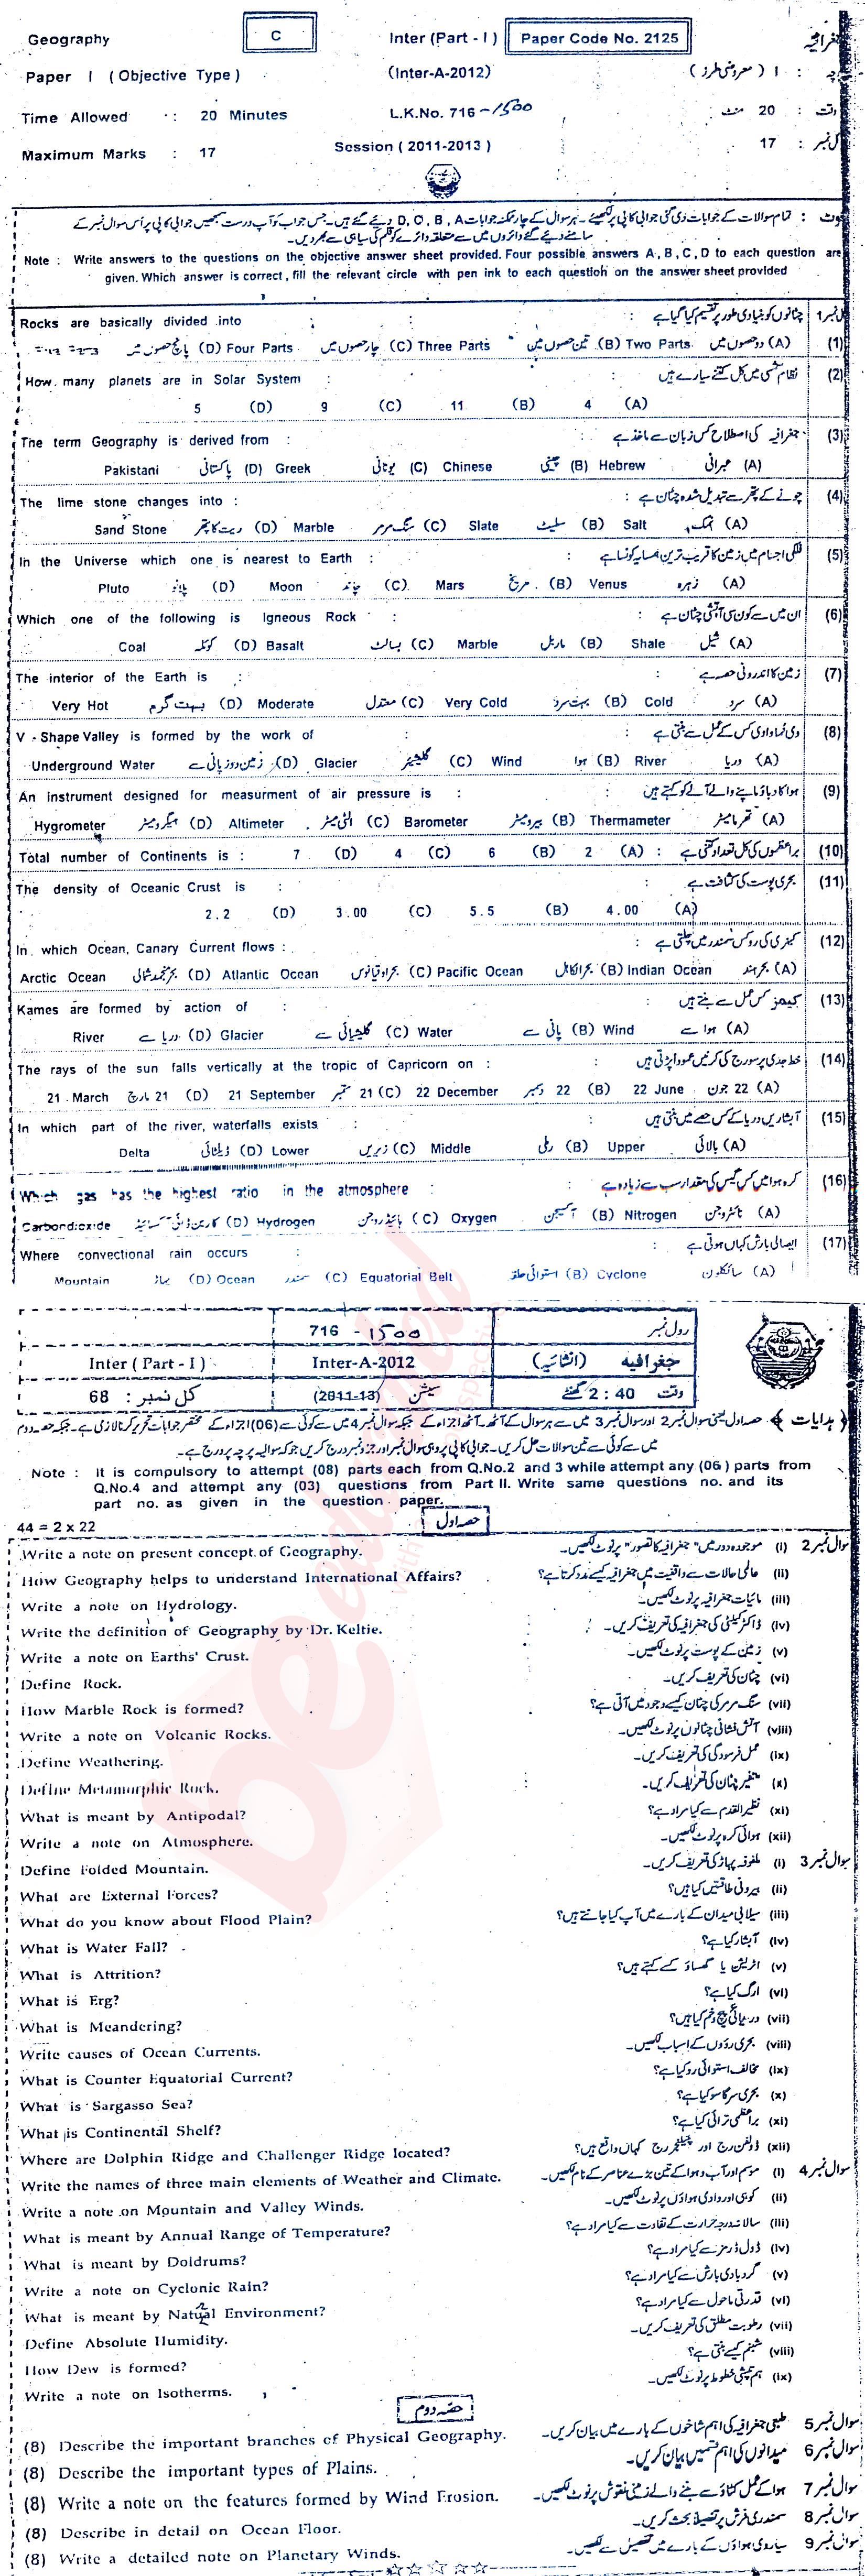 Geography C Inter (Part - I) Paper Code No. 2125 جغرافیہ
Paper I (Objective Type) (Inter-A-2012) I (معروضی طرز)
Time Allowed : 20 Minutes L.K.No. 716-1500 20 منٹ
Maximum Marks : 17 Session (2011-2013) 17
نوٹ : تمام سوالات کے جوابات دی گئی جوابی کاپی پر لکھیئے ۔ ہر سوال کے چار ممکنہ جوابات D, C, B, A دیئے گئے ہیں۔ جس جواب کو آپ درست سمجھیں جوابی کاپی پر اُس سوال نمبر کے
سامنے دیئے گئے دائروں میں سے متعلقہ دائرے کو قلم کی سیاہی سے بھر دیں۔
Note : Write answers to the questions on the objective answer sheet provided. Four possible answers A, B, C, D to each question are
given. Which answer is correct, fill the relevant circle with pen ink to each question on the answer sheet provided
Rocks are basically divided into : : چٹانوں کو بنیادی طور پر تقسیم کیا گیا ہے
پانچ حصوں میں (D) Four Parts چار حصوں میں (C) Three Parts تین حصوں میں (B) Two Parts دو حصوں میں (A) (1)
How many planets are in Solar System : : نظام شمسی میں کل کتنے سیارے ہیں (2)
5 (D) 9 (C) 11 (B) 4 (A)
The term Geography is derived from : : جغرافیہ کی اصطلاح کس زبان سے ماخذ ہے (3)
Pakistani پاکستانی (D) Greek یونانی (C) Chinese چینی (B) Hebrew عبرانی (A)
The lime stone changes into : : چونے کے پتھر سے تبدیل شدہ چٹان ہے (4)
Sand Stone ریت کا پتھر (D) Marble سنگ مرمر (C) Slate سلیٹ (B) Salt نمک (A)
In the Universe which one is nearest to Earth : : فلکی اجسام میں زمین کا قریب ترین ہمسایہ کونسا ہے (5)
Pluto پلوٹو (D) Moon چاند (C) Mars مریخ (B) Venus زہرہ (A)
Which one of the following is Igneous Rock : : ان میں سے کون سی آتشی چٹان ہے (6)
Coal کوئلہ (D) Basalt بسالٹ (C) Marble ماربل (B) Shale شیل (A)
The interior of the Earth is : : زمین کا اندرونی حصہ ہے (7)
Very Hot بہت گرم (D) Moderate معتدل (C) Very Cold بہت سرد (B) Cold سرد (A)
V - Shape Valley is formed by the work of : : وی نما وادی کس کے عمل سے بنتی ہے (8)
Underground Water زمین دوز پانی سے (D) Glacier گلیشیئر (C) Wind ہوا (B) River دریا (A)
An instrument designed for measurment of air pressure is : : ہوا کا دباؤ ماپنے والے آلے کو کہتے ہیں (9)
Hygrometer ہیگرومیٹر (D) Altimeter الٹی میٹر (C) Barometer بیرومیٹر (B) Thermameter تھرمامیٹر (A)
Total number of Continents is : 7 (D) 4 (C) 6 (B) 2 (A) : براعظموں کی کل تعداد کتنی ہے (10)
The density of Oceanic Crust is : : بحری پوست کی کثافت ہے (11)
2.2 (D) 3.00 (C) 5.5 (B) 4.00 (A)
In which Ocean, Canary Current flows : : کینری کی رو کس سمندر میں چلتی ہے (12)
Arctic Ocean بحر منجمد شمالی (D) Atlantic Ocean بحر اوقیانوس (C) Pacific Ocean بحر الکاہل (B) Indian Ocean بحر ہند (A)
Kames are formed by action of : : کیمز کس عمل سے بنتے ہیں (13)
River دریا سے (D) Glacier گلیشیائی سے (C) Water پانی سے (B) Wind ہوا سے (A)
The rays of the sun falls vertically at the tropic of Capricorn on : : خط جدی پر سورج کی کرنیں عموداً پڑتی ہیں (14)
21 March 21 مارچ (D) 21 September 21 ستمبر (C) 22 December 22 دسمبر (B) 22 June 22 جون (A)
In which part of the river, waterfalls exists : : آبشاریں دریا کے کس حصے میں بنتی ہیں (15)
Delta ڈیلٹائی (D) Lower زیریں (C) Middle (B) Upper بالائی (A)
Which gas has the highest ratio in the atmosphere : : کرہ ہوا میں کس گیس کی مقدار سب سے زیادہ ہے (16)
Carbondioxide کاربن ڈائی آکسائیڈ (D) Hydrogen ہائیڈروجن (C) Oxygen آکسیجن (B) Nitrogen نائٹروجن (A)
Where convectional rain occurs : : ایصالی بارش کہاں ہوتی ہے (17)
Mountain پہاڑ (D) Ocean سمندر (C) Equatorial Belt استوائی حلقہ (B) Cyclone سائکلون (A)
716 - 1500 رول نمبر
Inter (Part - I) Inter-A-2012 جغرافیہ (انشائیہ)
کل نمبر : 68 (2011-13) سیشن وقت 2:40 گھنٹے
﴿ ہدایات ﴾ حصہ اول یعنی سوال نمبر 2 اور سوال نمبر 3 میں سے ہر سوال کے آٹھ ۔ آٹھ اجزاء کے جبکہ سوال نمبر 4 میں سے کوئی سے (06) اجزاء کے مختصر جوابات تحریر کرنا لازمی ہے۔ جبکہ حصہ دوم
میں سے کوئی سے تین سوالات حل کریں۔ جوابی کاپی پر وہی سوال نمبر اور جزو نمبر درج کریں جو کہ سوالیہ پرچہ پر درج ہے۔
Note : It is compulsory to attempt (08) parts each from Q.No.2 and 3 while attempt any (06) parts from
Q.No.4 and attempt any (03) questions from Part II. Write same questions no. and its
part no. as given in the question paper.
44 = 2 x 22 حصہ اول
Write a note on present concept of Geography. موجودہ دور میں "جغرافیہ کا تصور" پر نوٹ لکھیں۔ (i) سوال نمبر 2
How Geography helps to understand International Affairs? عالمی حالات سے واقفیت میں جغرافیہ کیسے مدد کرتا ہے؟ (ii)
Write a note on Hydrology. مائیات جغرافیہ پر نوٹ لکھیں۔ (iii)
Write the definition of Geography by Dr. Keltie. ڈاکٹر کیلٹی کی جغرافیہ کی تعریف کریں۔ (iv)
Write a note on Earths' Crust. زمین کے پوست پر نوٹ لکھیں۔ (v)
Define Rock. چٹان کی تعریف کریں۔ (vi)
How Marble Rock is formed? سنگ مرمر کی چٹان کیسے وجود میں آتی ہے؟ (vii)
Write a note on Volcanic Rocks. آتش فشانی چٹانوں پر نوٹ لکھیں۔ (viii)
Define Weathering. عمل فرسودگی کی تعریف کریں۔ (ix)
Define Metamorphic Rock. متغیر چٹان کی تعریف کریں۔ (x)
What is meant by Antipodal? نظیر القدم سے کیا مراد ہے؟ (xi)
Write a note on Atmosphere. ہوائی کرہ پر نوٹ لکھیں۔ (xii)
Define Folded Mountain. ملفوفہ پہاڑ کی تعریف کریں۔ (i) سوال نمبر 3
What are External Forces? بیرونی طاقتیں کیا ہیں؟ (ii)
What do you know about Flood Plain? سیلابی میدان کے بارے میں آپ کیا جانتے ہیں؟ (iii)
What is Water Fall? آبشار کیا ہے؟ (iv)
What is Attrition? اٹریشن یا گھساؤ کسے کہتے ہیں؟ (v)
What is Erg? ارگ کیا ہے؟ (vi)
What is Meandering? دریائی پیچ و خم کیا ہیں؟ (vii)
Write causes of Ocean Currents. بحری روؤں کے اسباب لکھیں۔ (viii)
What is Counter Equatorial Current? مخالف استوائی رو کیا ہے؟ (ix)
What is Sargasso Sea? بحری سرگاسو کیا ہے؟ (x)
What is Continental Shelf? براعظمی ترائی کیا ہے؟ (xi)
Where are Dolphin Ridge and Challenger Ridge located? ڈولفن رج اور چیلنجر رج کہاں واقع ہیں؟ (xii)
Write the names of three main elements of Weather and Climate. موسم اور آب و ہوا کے تین بڑے عناصر کے نام لکھیں۔ (i) سوال نمبر 4
Write a note on Mountain and Valley Winds. کوہی اور وادی ہواؤں پر نوٹ لکھیں۔ (ii)
What is meant by Annual Range of Temperature? سالانہ درجہ حرارت کے تفاوت سے کیا مراد ہے؟ (iii)
What is meant by Doldrums? ڈول ڈرمز سے کیا مراد ہے؟ (iv)
Write a note on Cyclonic Rain? گردبادی بارش سے کیا مراد ہے؟ (v)
What is meant by Natural Environment? قدرتی ماحول سے کیا مراد ہے؟ (vi)
Define Absolute Humidity. رطوبت مطلق کی تعریف کریں۔ (vii)
How Dew is formed? شبنم کیسے بنتی ہے؟ (viii)
Write a note on Isotherms. ہم تپشی خطوط پر نوٹ لکھیں۔ (ix)
حصہ دوم
(8) Describe the important branches of Physical Geography. طبعی جغرافیہ کی اہم شاخوں کے بارے میں بیان کریں۔ سوال نمبر 5
(8) Describe the important types of Plains. میدانوں کی اہم قسمیں بیان کریں۔ سوال نمبر 6
(8) Write a note on the features formed by Wind Erosion. ہوا کے عمل کٹاؤ سے بننے والے زمینی نقوش پر نوٹ لکھیں۔ سوال نمبر 7
(8) Describe in detail on Ocean Floor. سمندری فرش پر تفصیلاً بحث کریں۔ سوال نمبر 8
(8) Write a detailed note on Planetary Winds. سیاروی ہواؤں کے بارے میں تفصیل سے لکھیں۔ سوال نمبر 9